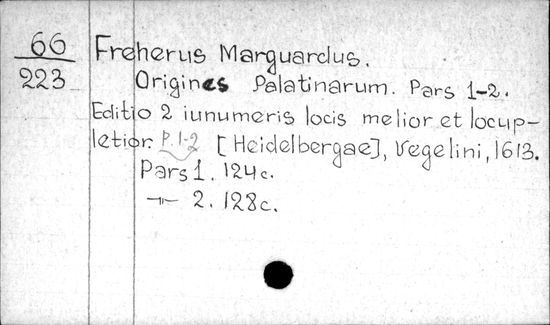 66
223
Freherus Marguardus.
Origines Palatinarum. Pars 1-2.
Editio 2 iunumeris locis melior et locup-
letior. P. 1-2 [Heidelbergae], Vegelini, 1613.
Pars 1. 124c.
–"– 2. 128c.